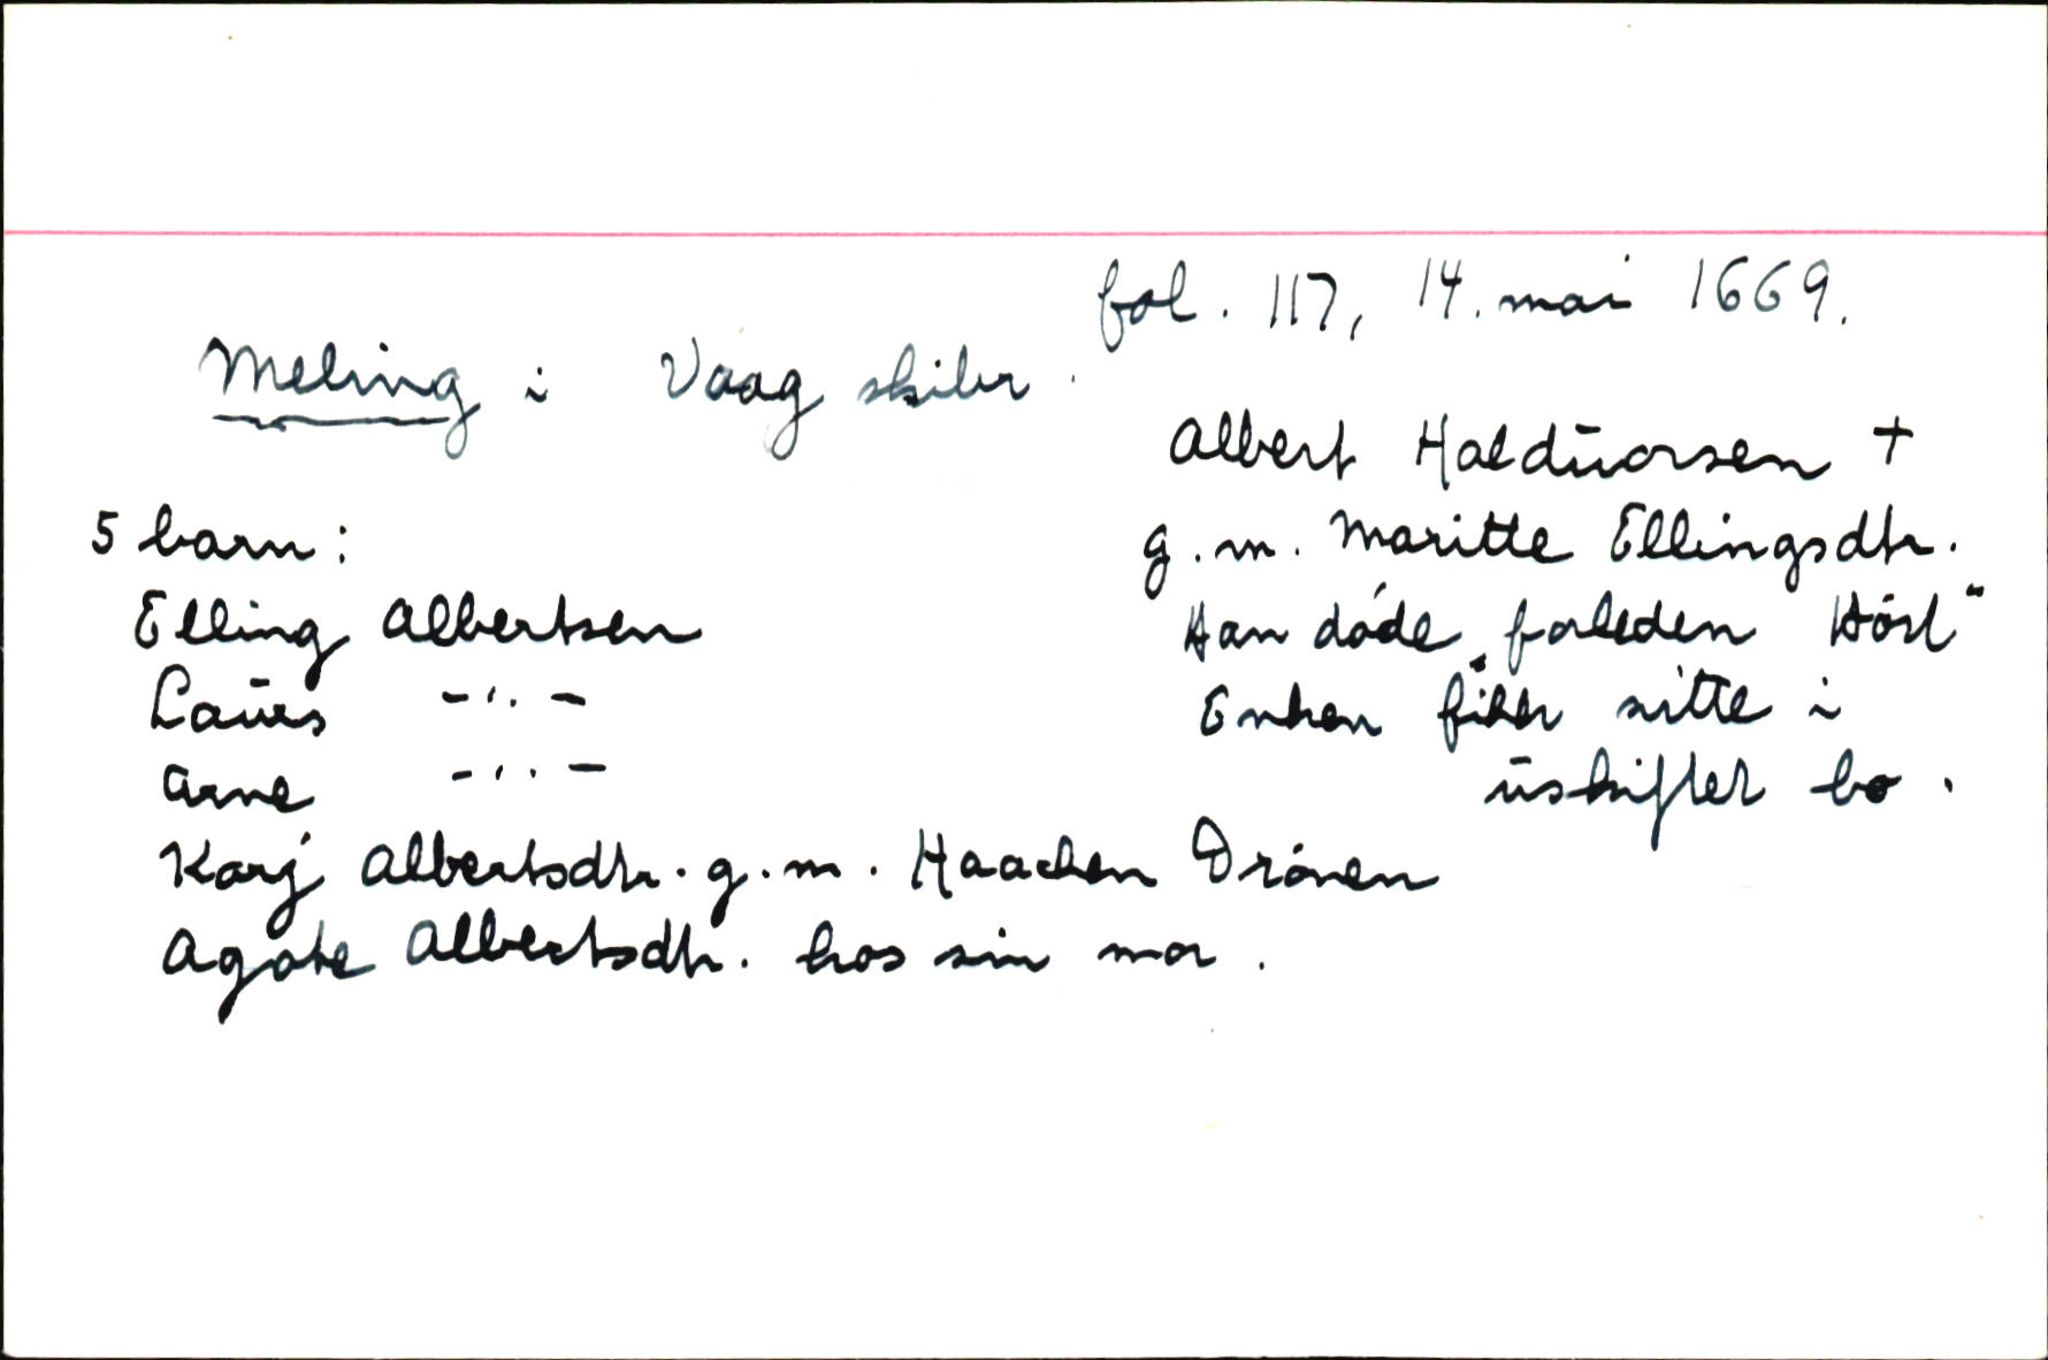 fol. 117, 14. mai 1669.
Meling i Vaag skiber.
Albert Halduorsen +
g.m. Maritte Ellingsdtr.
Han døde "forleden Høst"
Enken fikk sitte i
uskiftet bo.
5 barn:
Elling Albertsen
Laues -"-
Arne -"-
Karj Albertsdtr. g.m. Haachen Drønen
Agate Albertsdtr. hos sin mor.